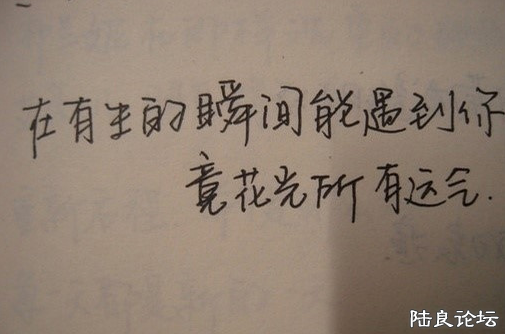 在有生的瞬间能遇到你
竟花光所有运气.
陆良论坛